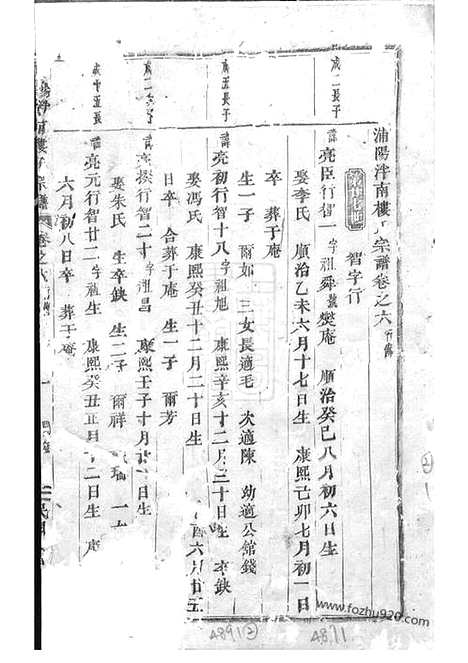 浦陽泮南樓 宗譜卷之六 行傳
智字行
成二長子 諱亮臣行智一字祖舜號樊庵 順治癸巳八月初六日生
娶李氏 順治乙未六月十七日生 康熙己卯七月初一日
卒 葬于庵
生一子 爾如 三女長適毛 次適陳 幼適公館錢
成五長子 諱亮初行智十八字祖旭 康熙辛亥十二月三十日生 卒缺
娶馮氏 康熙癸丑十二月二十日生 六月廿五
日卒 合葬于庵 生一子 爾芳
成二 子 行智二十字祖昌 康熙壬子十月廿 日生
娶朱氏 生卒缺 生二子 爾祥
成十五長子 諱亮元行智廿二字祖生 康熙癸丑正月 二日生
六月初八日卒 葬于庵
南樓 宗譜 卷之六
www.fozhu920.com
4891②
4871